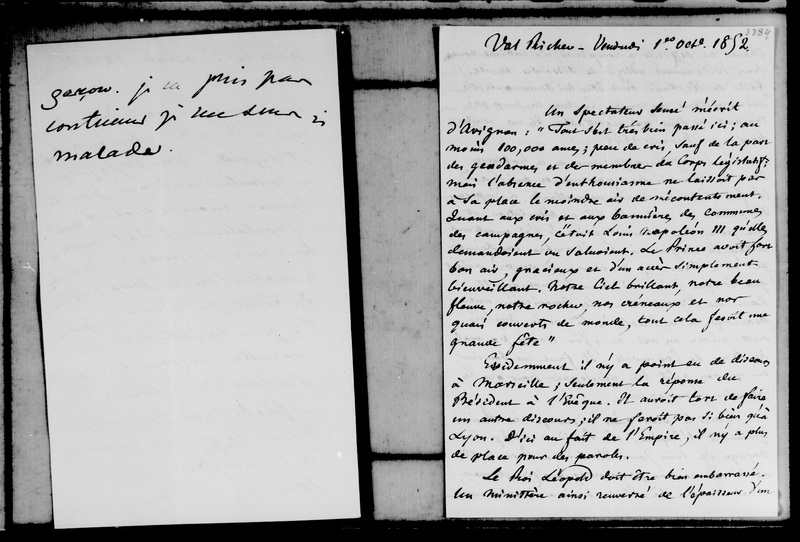 garçon. je ne puis pas
continuer je me sens
malade.
3384
Val Richer - Vendredi 1er Octe. 1852.
Un spectateur sensé m'écrit
d'Avignon : "Tout s'est très bien passé ici ; au
moins 100,000 ames ; peu de cris, sauf de la part
des gendarmes et des membres du Corps législatif ;
mais l'absence d'enthousiasme ne laissoit pas
à sa place le moindre air de mécontentement.
Quant aux cris et aux bannières des communes
des campagnes, c'étoit Louis Napoléon III qu'elles
demandoient ou saluoient. Le Prince avoit fort
bon air, gracieux et d'un accès simplement
bienveillant. Notre Ciel brillant, notre beau
fleuve, notre rocher, nos créneaux et nos
quais couverts de monde, tout cela fesoit une
grande fête"
Evidemment il n'y a point eu de discours
à Marseille ; seulement la réponse du
Président à l'Evêque. Il auroit tort de faire
un autre discours ; il ne feroit pas si bien qu'à
Lyon. D'ici au fait de l'Empire, il n'y a plus
de place pour des paroles.
Le Roi Léopold doit être bien embarrassé.
Un ministère ainsi renversé de l'épaisseur d'un